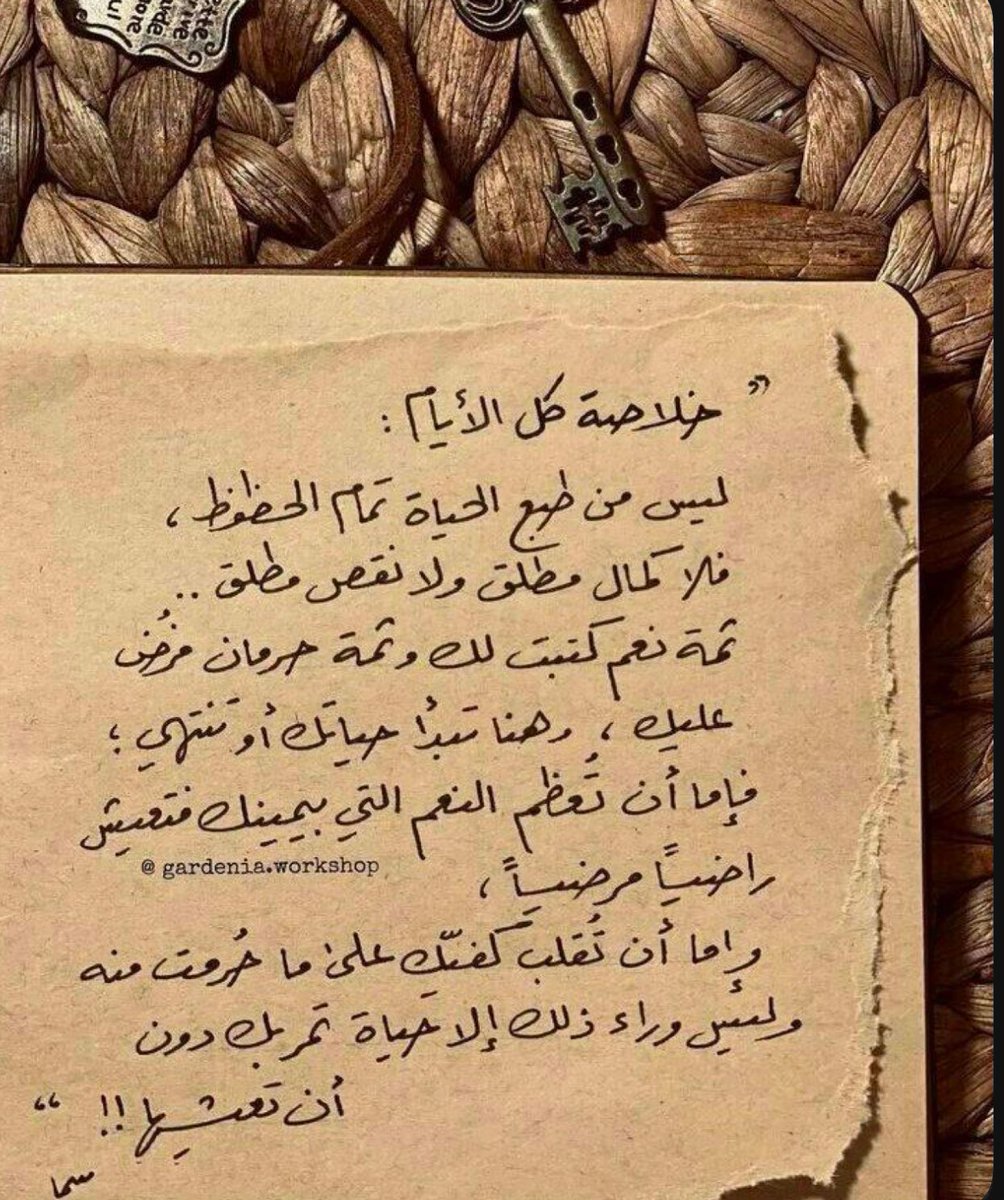 ” خلاصة كل الأيام :
ليس من طبع الحياة تمام الحظوظ ،
فلا كمال مطلق ولا نقص مطلق ..
ثمة نعم كتبت لك وثمة حرمان فُرض
عليك ، وهنا تبدأ حياتك أو تنتهي ؛
فإما أن تُعظم النعم التي بيمينك فتعيش
@gardenia.workshop
راضياً مرضياً ،
وإما أن تُقلب كفيّك على ما حُرمت منه
وليس وراء ذلك إلا حياة تمر بك دون
أن تعيشها !! “